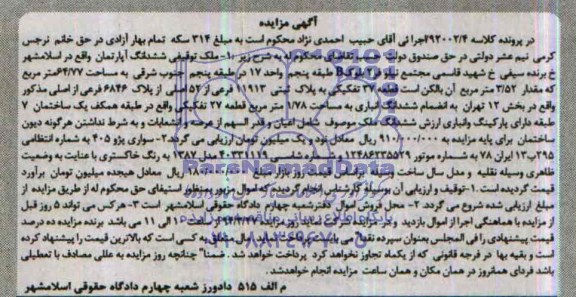 آگهی مزایده
در پرونده کلاسه ۹۳۰۰۲/۴ اجرائی آقای حبیب احمدی نژاد محکوم است به مبلغ ۳۱۴ سکه تمام بهار آزادی در حق خانم نرجس
کرمی نیم عشر دولتی در حق صندوق دولت به شرح زیر ۱- ملک توقیفی ششدانگ آپارتمان واقع در اسلامشهر
خ برنده سیفی خ شهید قاسمی مجتمع طبقه پنجم واحد ۱۷ در طبقه پنجم جنوب شرقی به مساحت ۶۴/۷۷ متر مربع
که مقدار ۳/۵۲ متر مربع آن بالکن است قطعه ۲۷ تفکیکی به پلاک ثبتی فرعی از ۵۲ اصلی از پلاک ۶۸۴۶ فرعی از اصلی مذکور
واقع در بخش ۱۲ تهران به انضمام ششدانگ انباری به مساحت ۱/۷۸ متر مربع قطعه ۲۷ تفکیکی واقع در طبقه همکف یک ساختمان ۷
طبقه دارای پارکینگ وانباری ارزش ششدانگ ملک موصوف شامل اعیان وقدر السهم از عرصه وانشعابات و به شرط نداشتن هرگونه دیون
ساختمان برای پایه مزایده به ریال معادل نود و یک میلیون تومان ارزیابی می گردد. ۲- سواری پژو ۴۰۵ به شماره انتظامی
ایران ۷۸ به شماره موتور و شماره شاسی مدل ۱۳۸۷ به رنگ خاکستری با عنایت به وضعیت
ظاهری وسیله نقلیه و مدل سال ساخت بازار مبلغ ریال معادل هیجده میلیون تومان برآورد
قیمت گردیده است. ۱- توقیف و ارزیابی آن بوسیله کارشناس انجام گردیده که اموال مزبور به منظور استیفای حق محکوم له از طریق مزایده از
مبلغ ارزیابی شده شروع می گردد. ۲- محل فروش اموال دفتر شعبه چهارم دادگاه حقوقی اسلامشهر است ۳- هرکس می تواند ۵ روز قبل
از مزایده با هماهنگی اجرا از اموال بازدید و در مزایده شرکت نماید روز مزایده ساعت ۱۰ الی ۱۱ می باشد برنده مزایده ده درصد
قیمت پیشنهادی را فی المجلس بعنوان سپرده نقدا می بایست پرداخت نماید اموال متعلق به کسی است که بالاترین قیمت را پیشنهاد کرده
است و بقیه بها در فرجه قانونی که از یکماه تجاوز نخواهد کرد پرداخت خواهد شد. ضمنا" چنانچه روز مزایده به عللی مصادف با تعطیلی
باشد فردای همانروز در همان مکان و همان ساعت مزایده انجام خواهدشد.
م الف ۵۱۵ دادورز شعبه چهارم دادگاه حقوقی اسلامشهر
ParsNamadData